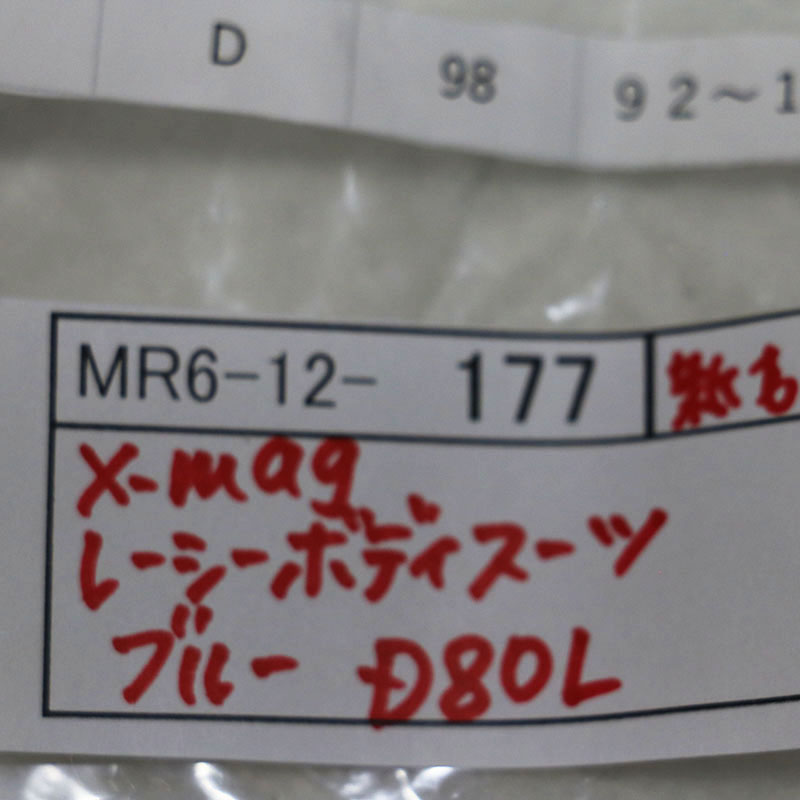 D 98 92～1
MR6-12- 177
X-mag
レーシーボディスーツ
ブルー D80L